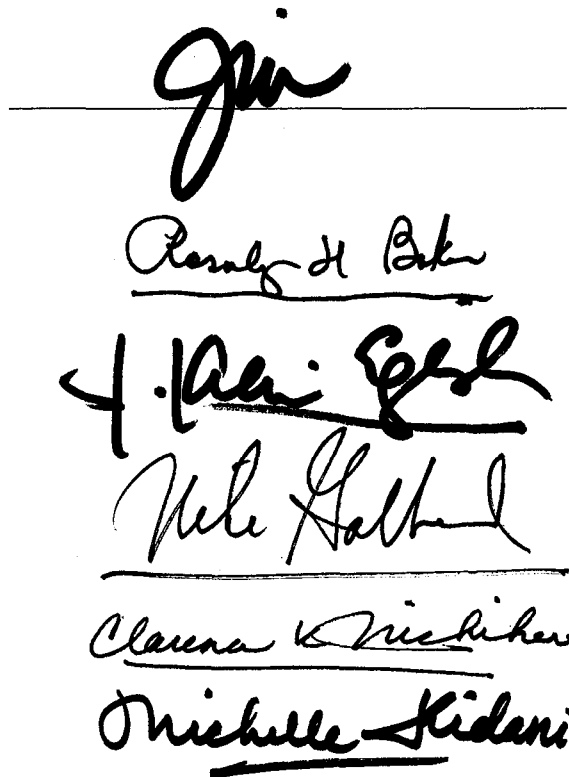 Rosalyn H Baker
J. Kalani English
Mike Gabbard
Clarence K Nishihara
Michelle Kidani